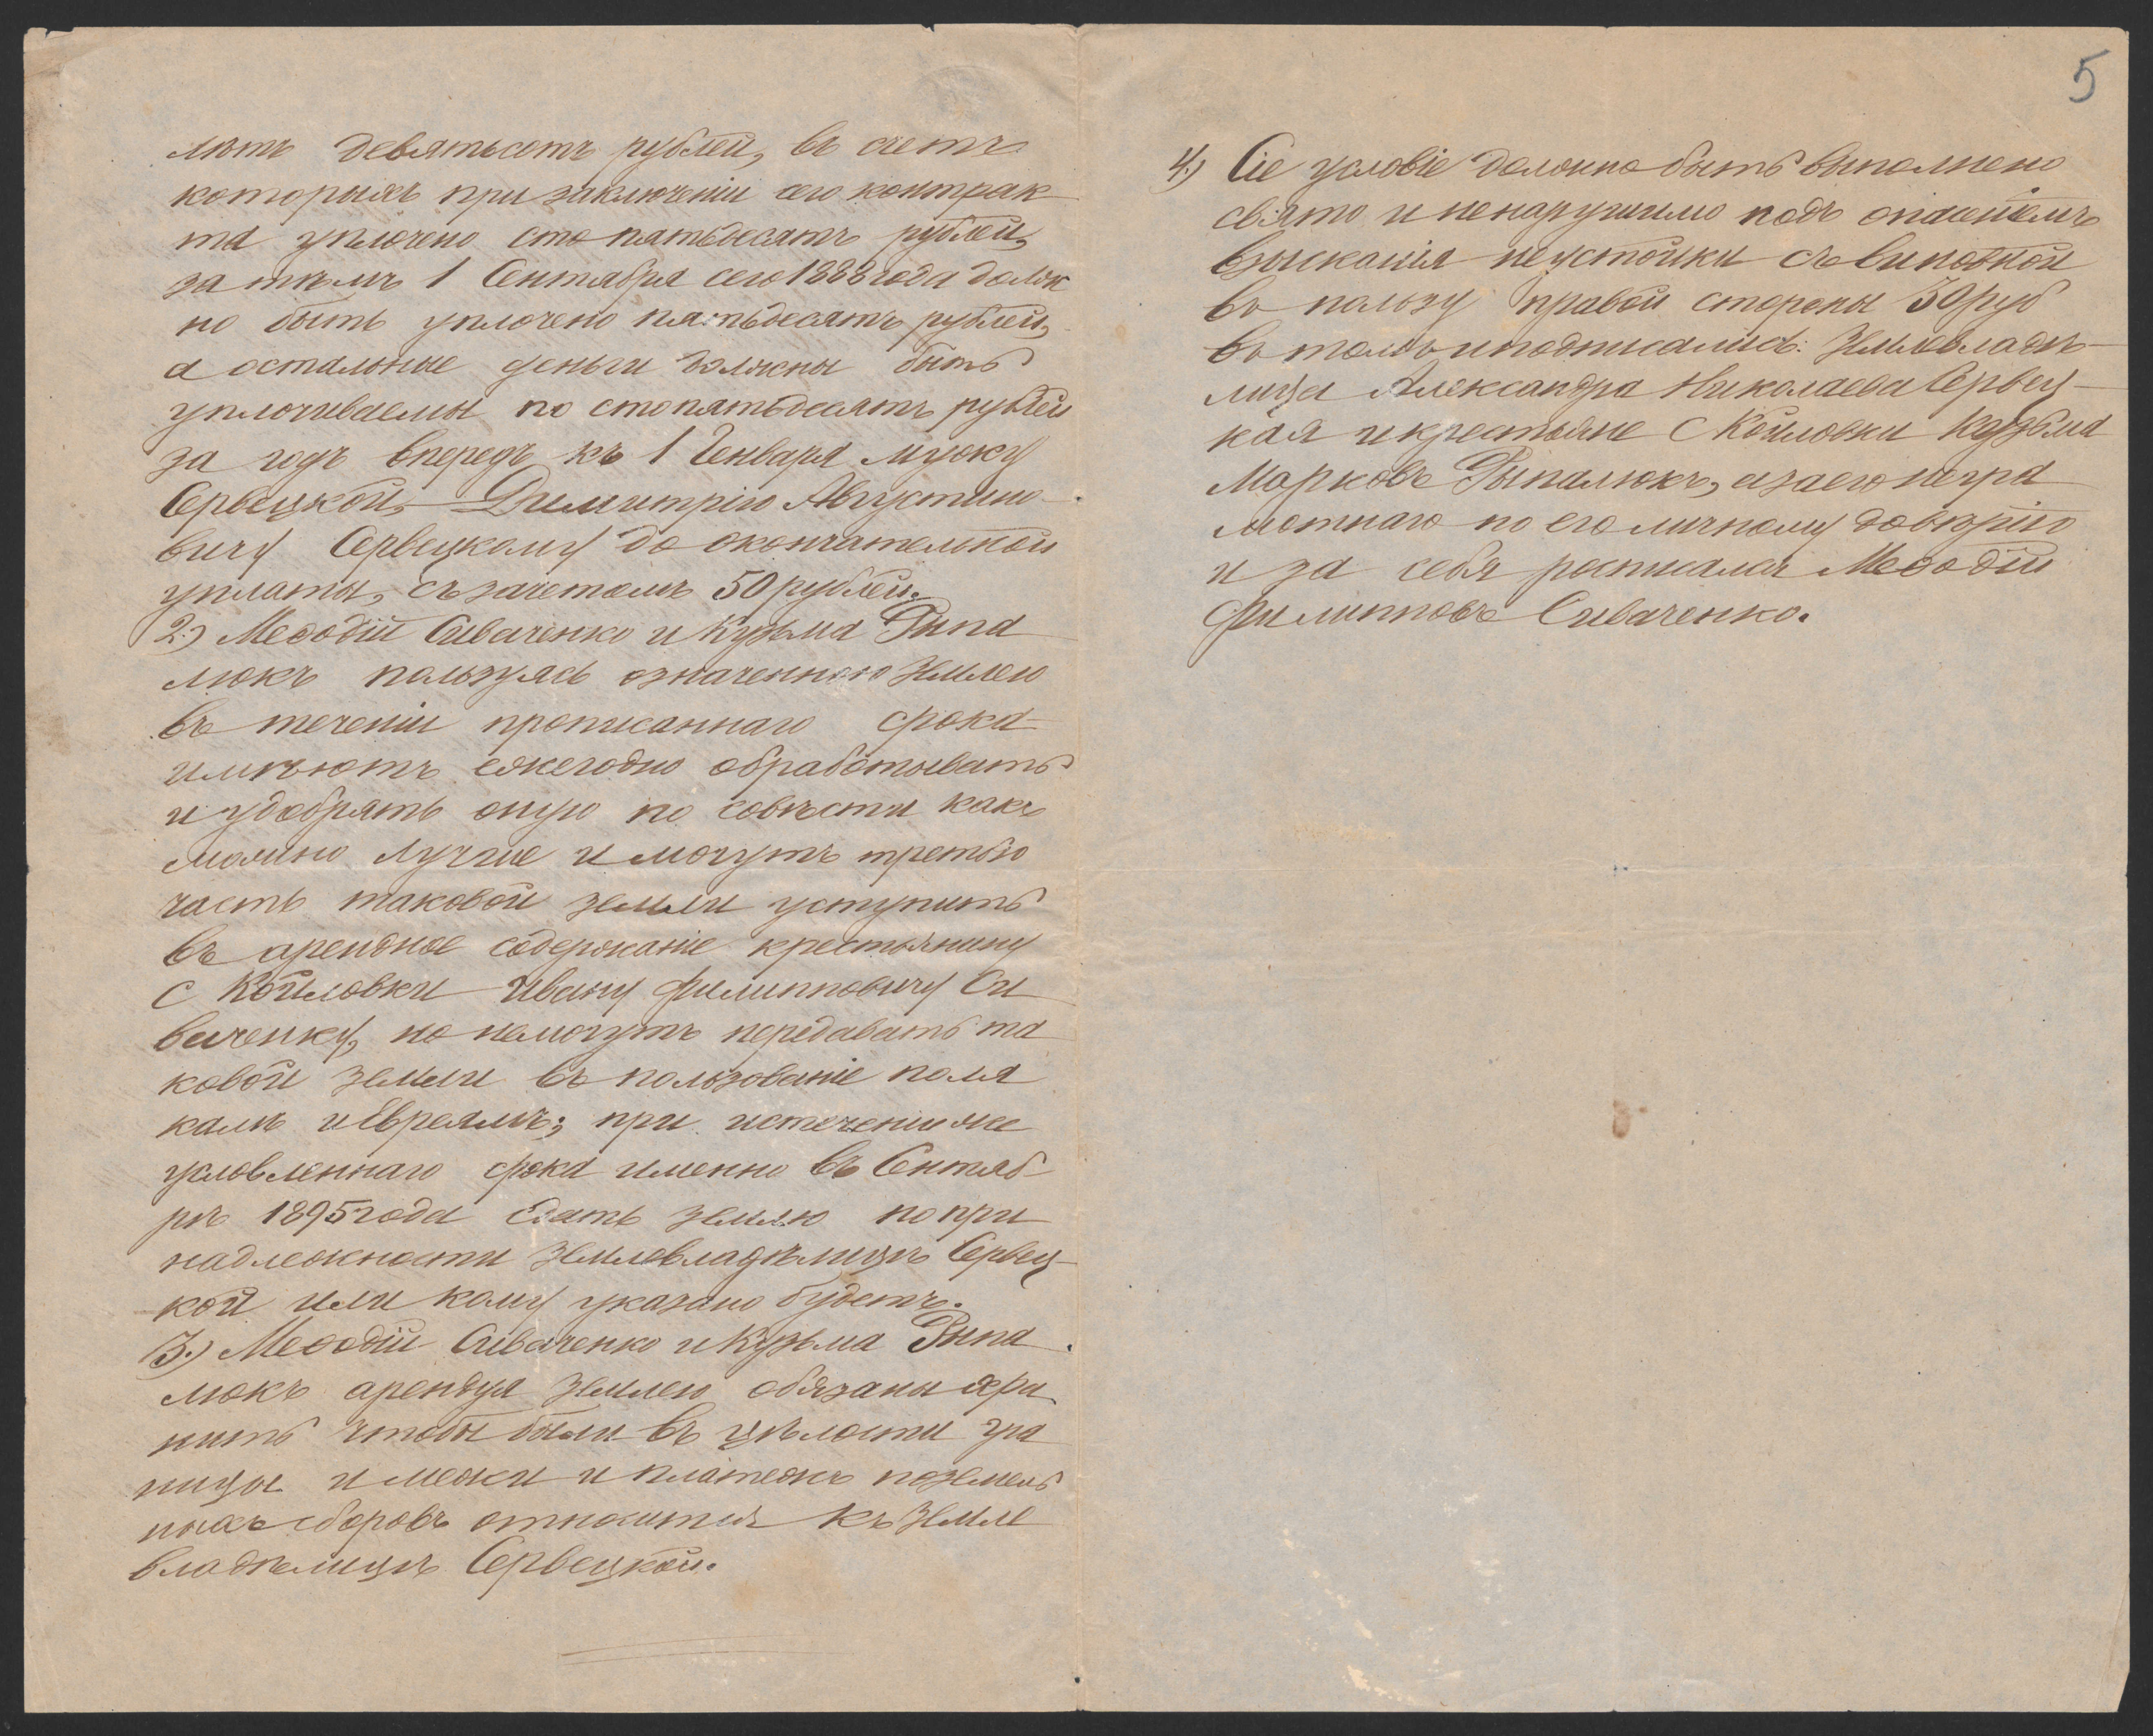 лѣтъ девятьсотъ рублей, въ счетъ
которыхъ при заключеніи сего контрак
та уплочено стопятьдесятъ рублей,
затѣмъ 1 Сентября сего 1888 года долж
но быть уплочено пятьдесятъ рублей,
а остальные деньги должны быть
уплочиваемы по стопятьдесятъ рублей
за годъ впередъ къ 1 Генваря мужу
Сервецкой, Димитрію Августино-
вичу Сервецкому до окончательной
уплаты, съ зачетомъ 50 рублей.
2.) Меѳодій Сиваченко и Кузьма Рипа
люкъ пользуясь означенною землею
въ теченіи прописаннаго срока
имѣютъ ежегодно обработывать
и удобрять оную по совѣсти какъ
можно лучше и могутъ третью
часть таковой земли уступить
въ арендное содержаніе крестьянину
С Койловки Ивану Филипповичу Си
ваченку, но немогутъ передавать та
ковой земли въ пользованіе поля
камъ и Евреямъ; при истеченіи же
условленнаго срока именно въ Сентяб-
рѣ 1895 года сдать землю попри
надлежности землевладѣлицѣ Сервец-
кой или кому указано будетъ.
3.) Меѳодій Сиваченко и Кузьма Рипа
люкъ арендуя землею обязаны хра
нить чтобы были въ цѣлости гра
ницы и межи и платежъ поземель
ныхъ сборовъ относится къ земле
владѣлицѣ Сервецкой.
5
4.) Сіе условіе должно быть выполнено
свято и ненарушимо подъ опасеніемъ
взысканія неустойки съ виновной
въ пользу правой стороны 50 руб
въ томъ и подписались: Землевладѣ-
лица Александра Николаева Сервец-
кая и крестьяне С Койловки Кузьма
Марковъ Рыпалюкъ, а за его негра
мотнаго по его личному довѣрію
и за себя росписался Меѳодій
Филипповъ Сиваченко.